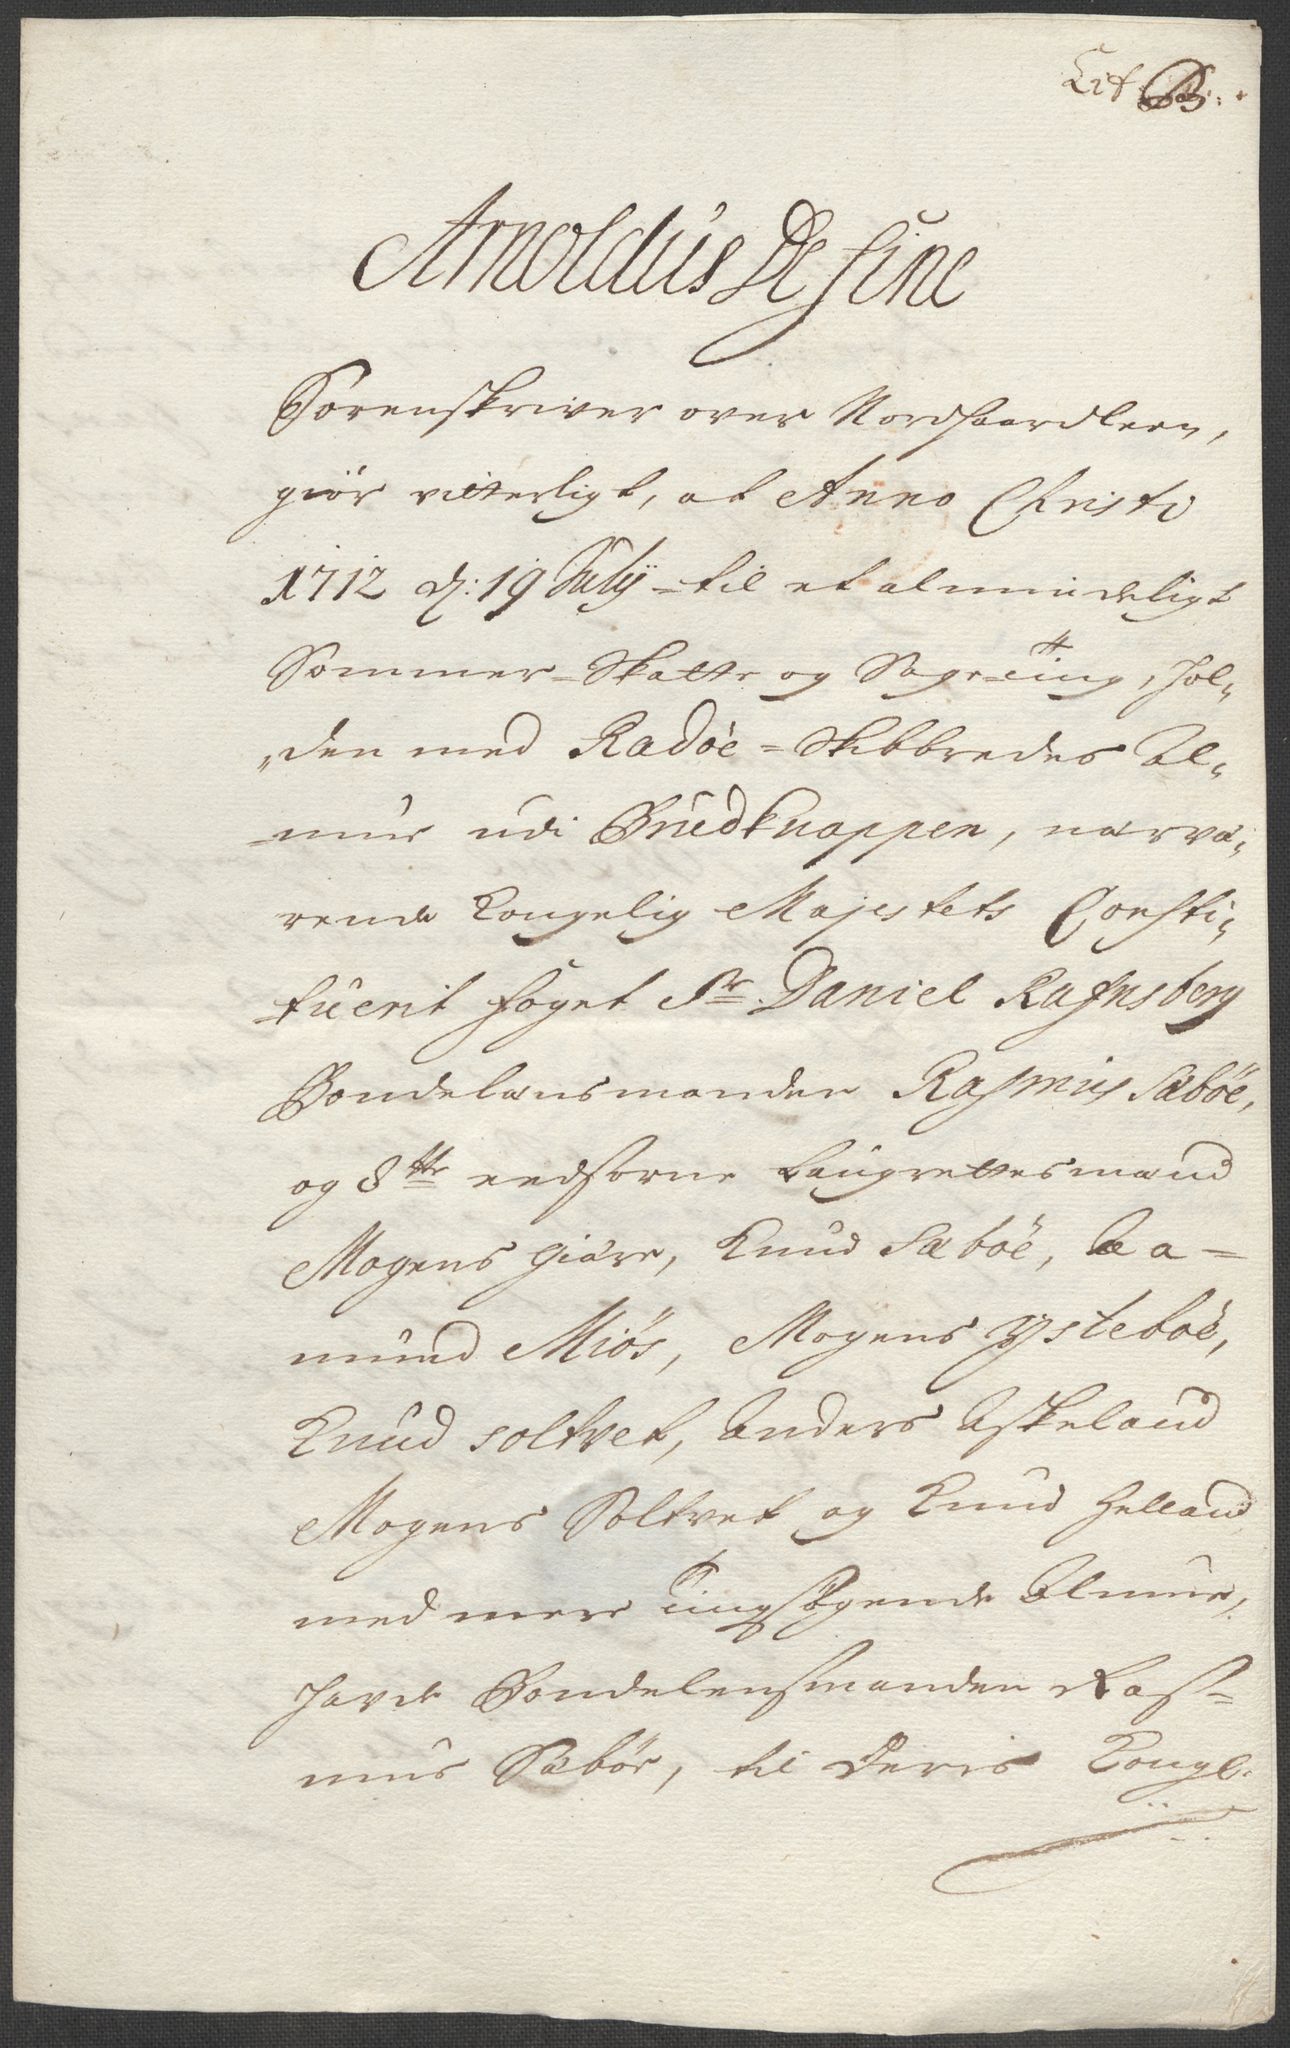 Lit B:
Arnoldus De Fine
Sorenskriver over Nordhaardlen,
giör vitterligt, at Anno Christi
1712 d: 19 July - til et almindeligt
Sommer-Skatte og Sage-Ting, hol-
den med Radöe-Skibbredes Al-
mue udi Bruedknappen, nærvæ-
rende Kongelig Majestets Consti-
tuerit foget Sr. Daniel Rafnsberg
Bondelænsmanden Rasmus Sæböe,
og 8tte eedsorne Laugrettesmænd
Mogens Giære, Knud Sæböe, Aa-
mund Miös, Mogens Ysteboe,
Knud soltvet, Anders Askeland
Mogens Soltvet og Knud Helland
med mere Tingsögende Almue,
havde Bondelensmanden Ras-
mus Sæböe, til Deris Kongl: